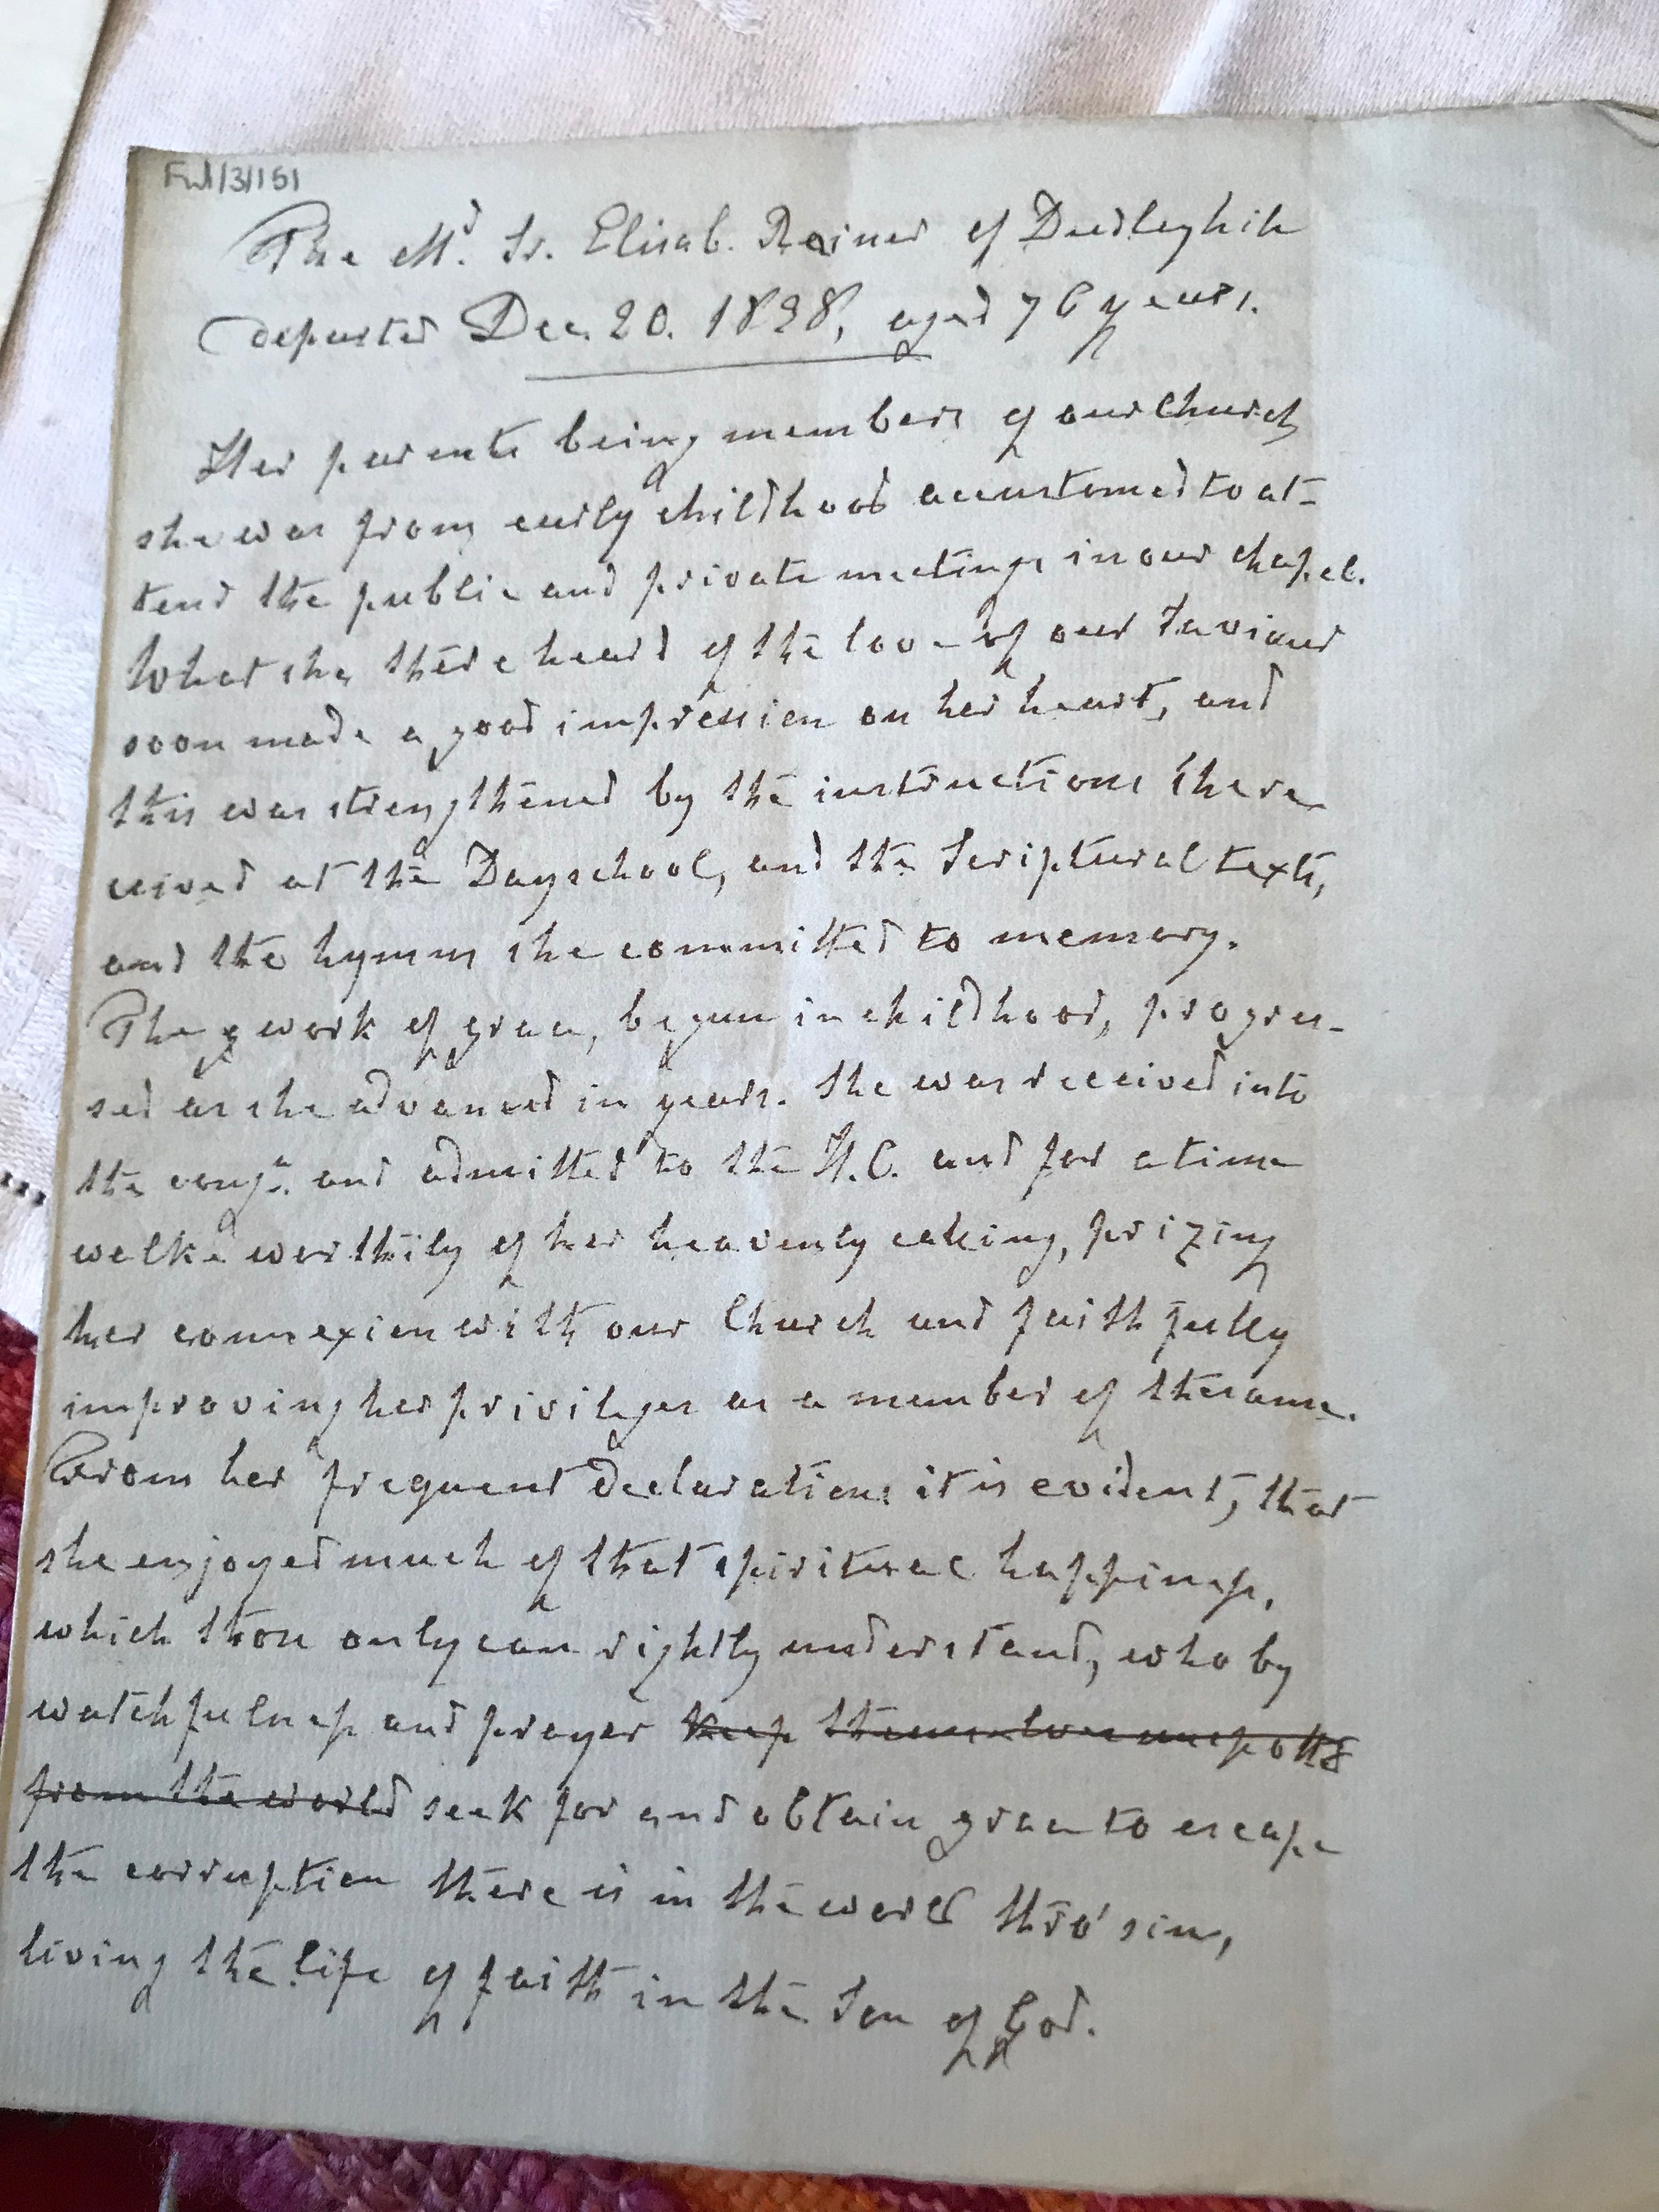 Ful/3/151
The Md. Sr. Elisab. Rainer of Dudleyhill
departed Dec. 20. 1838, aged 76 years.
Her parents being members of our Church
she was from early childhood accustomed to at-
tend the public and private meetings in our chapel.
What she there heard of the love of our Saviour
soon made a good impression on her heart, and
this was strengthened by the instructions she re-
ceived at the Dayschool, and the Scriptural texts,
and the hymns she committed to memory.
The work of grace, begun in childhood, progres-
sed as she advanced in years. She was received into
the congn. and admitted to the H.C. and for a time
walked worthily of her heavenly calling, prizing
her connexion with our Church and faithfully
improving her privileges as a member of the same.
From her frequent declarations it is evident, that
she enjoyed much of that spiritual happiness,
which those only can rightly understand, who by
watchfulness and prayer keep themselves unspotted
from the world seek for and obtain grace to escape
the corruption there is in the world thro' sin,
living the life of faith in the Son of God.